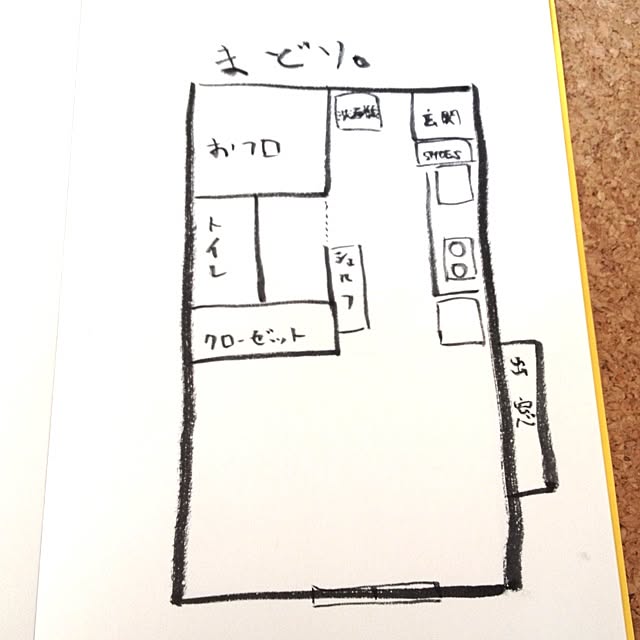 まどり。
洗濯機
玄関
おフロ
SHOES
トイレ
シェルフ
クローゼット
出窓